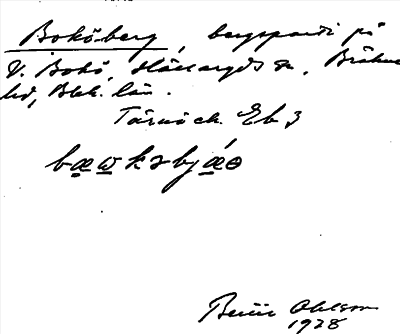 Boköberg, bergsparti på
V. Bokö, Hällaryds sn, Bräkne
hd, Blek. län.
Tärnö ch. Eb 3
Bertil Ohlson
1928